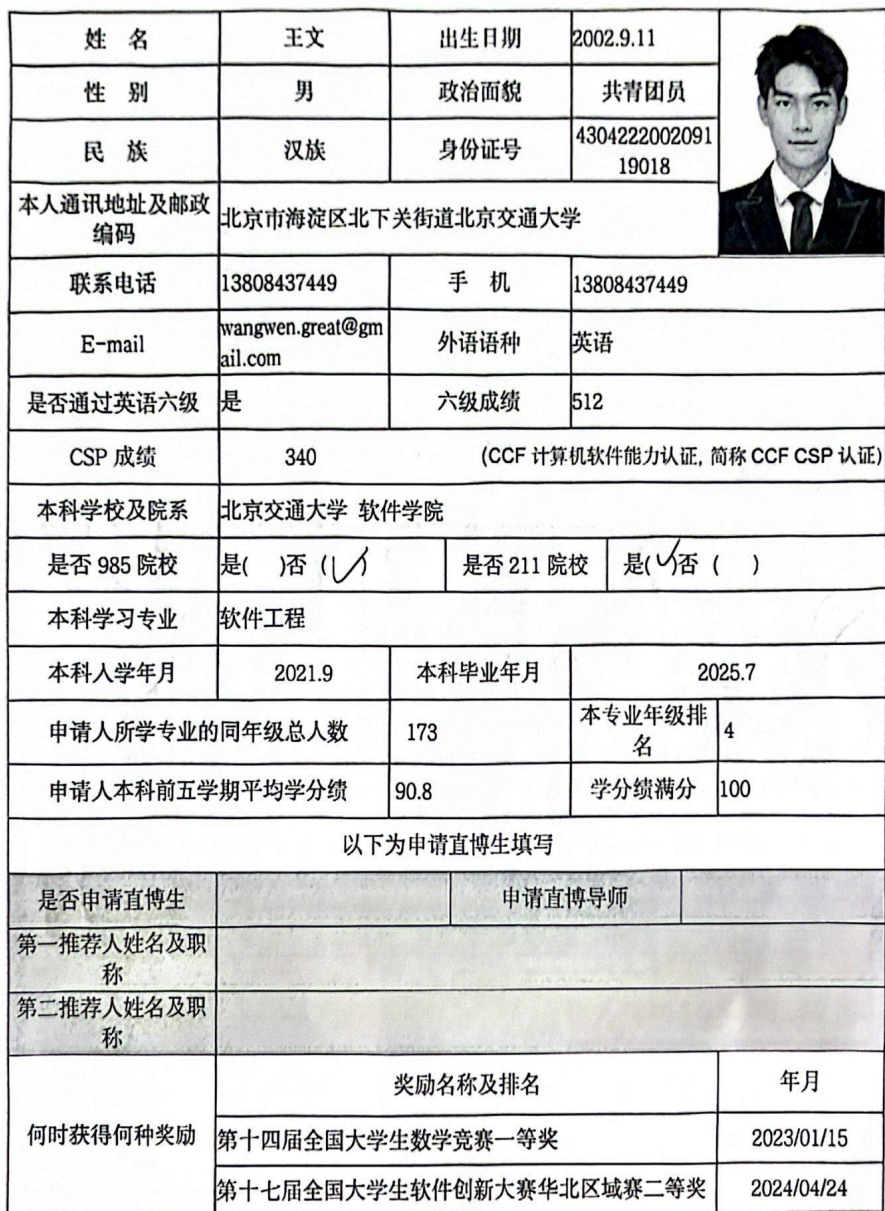 姓 名 王文 出生日期 2002.9.11
性 别 男 政治面貌 共青团员
民 族 汉族 身份证号 4304222002091
19018
本人通讯地址及邮政
编码 北京市海淀区北下关街道北京交通大学
联系电话 13808437449 手 机 13808437449
E-mail wangwen.great@gm
ail.com 外语语种 英语
是否通过英语六级 是 六级成绩 512
CSP 成绩 340 (CCF 计算机软件能力认证, 简称 CCF CSP 认证)
本科学校及院系 北京交通大学 软件学院
是否 985 院校 是( )否 (✓) 是否 211 院校 是(✓)否 ( )
本科学习专业 软件工程
本科入学年月 2021.9 本科毕业年月 2025.7
申请人所学专业的同年级总人数 173 本专业年级排
名 4
申请人本科前五学期平均学分绩 90.8 学分绩满分 100
以下为申请直博生填写
是否申请直博生 申请直博导师
第一推荐人姓名及职
称
第二推荐人姓名及职
称
何时获得何种奖励 奖励名称及排名 年月
第十四届全国大学生数学竞赛一等奖 2023/01/15
第十七届全国大学生软件创新大赛华北区域赛二等奖 2024/04/24